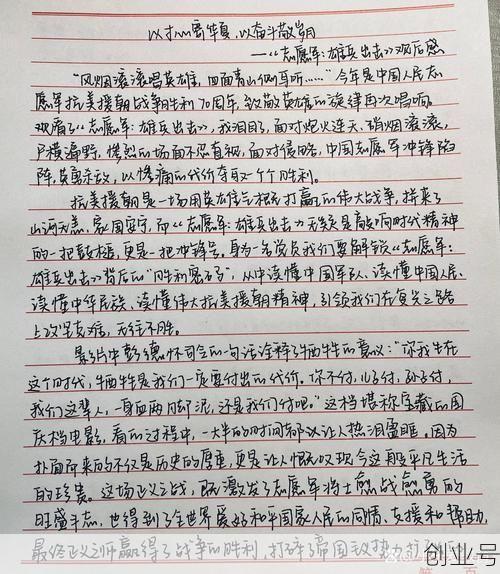 以热心寄壮夏,以奋斗敬岁月
——《志愿军:雄兵出击》观后感
"风烟滚滚唱英雄,四面青山侧耳听……"今年是中国人民志
愿军抗美援朝战争胜利70周年,致敬英雄的旋律再次唱响。
观看了《志愿军:雄兵出击》,我泪目了,面对炮火连天、硝烟滚滚,
尸横遍野,惨烈的场面不忍直视,面对侵略,中国志愿军冲锋陷
阵,英勇杀敌,以惨痛的代价夺取一个个胜利。
抗美援朝是一场用英雄气概打赢的伟大战争,拼来了
山河无恙、家国安宁,而《志愿军:雄兵出击》无疑是高响时代精神
的一把鼓槌,更是一把冲锋号。身为一名党员我们要解锁《志愿军:
雄兵出击》背后的"胜利密码",从中读懂中国军队、读懂中国人民、
读懂中华民族、读懂伟大抗美援朝精神,引领我们在复兴之路
上攻坚克难,无往不胜。
影片中彭德怀司令的一句话诠释了牺牲的意义:"你我生在
这个时代,牺牲是我们一定要付出的代价。你不付,儿子付,孙子付,
我们这辈人,一身血两脚泥,还是我们付吧。"这档堪称宝藏的国
庆档电影,看的过程中,一大半的时间都以让人热泪盈眶。因为
扑面而来的不仅是历史的厚重,更是让人慨叹现今这般平凡生活
的珍贵。这场正义之战,既激发了志愿军将士愈战愈勇的
旺盛斗志,也得到了全世界爱好和平国家人民的同情、支援和帮助,
最终正义之师赢得了战争的胜利,打碎了帝国主义势力
创业号